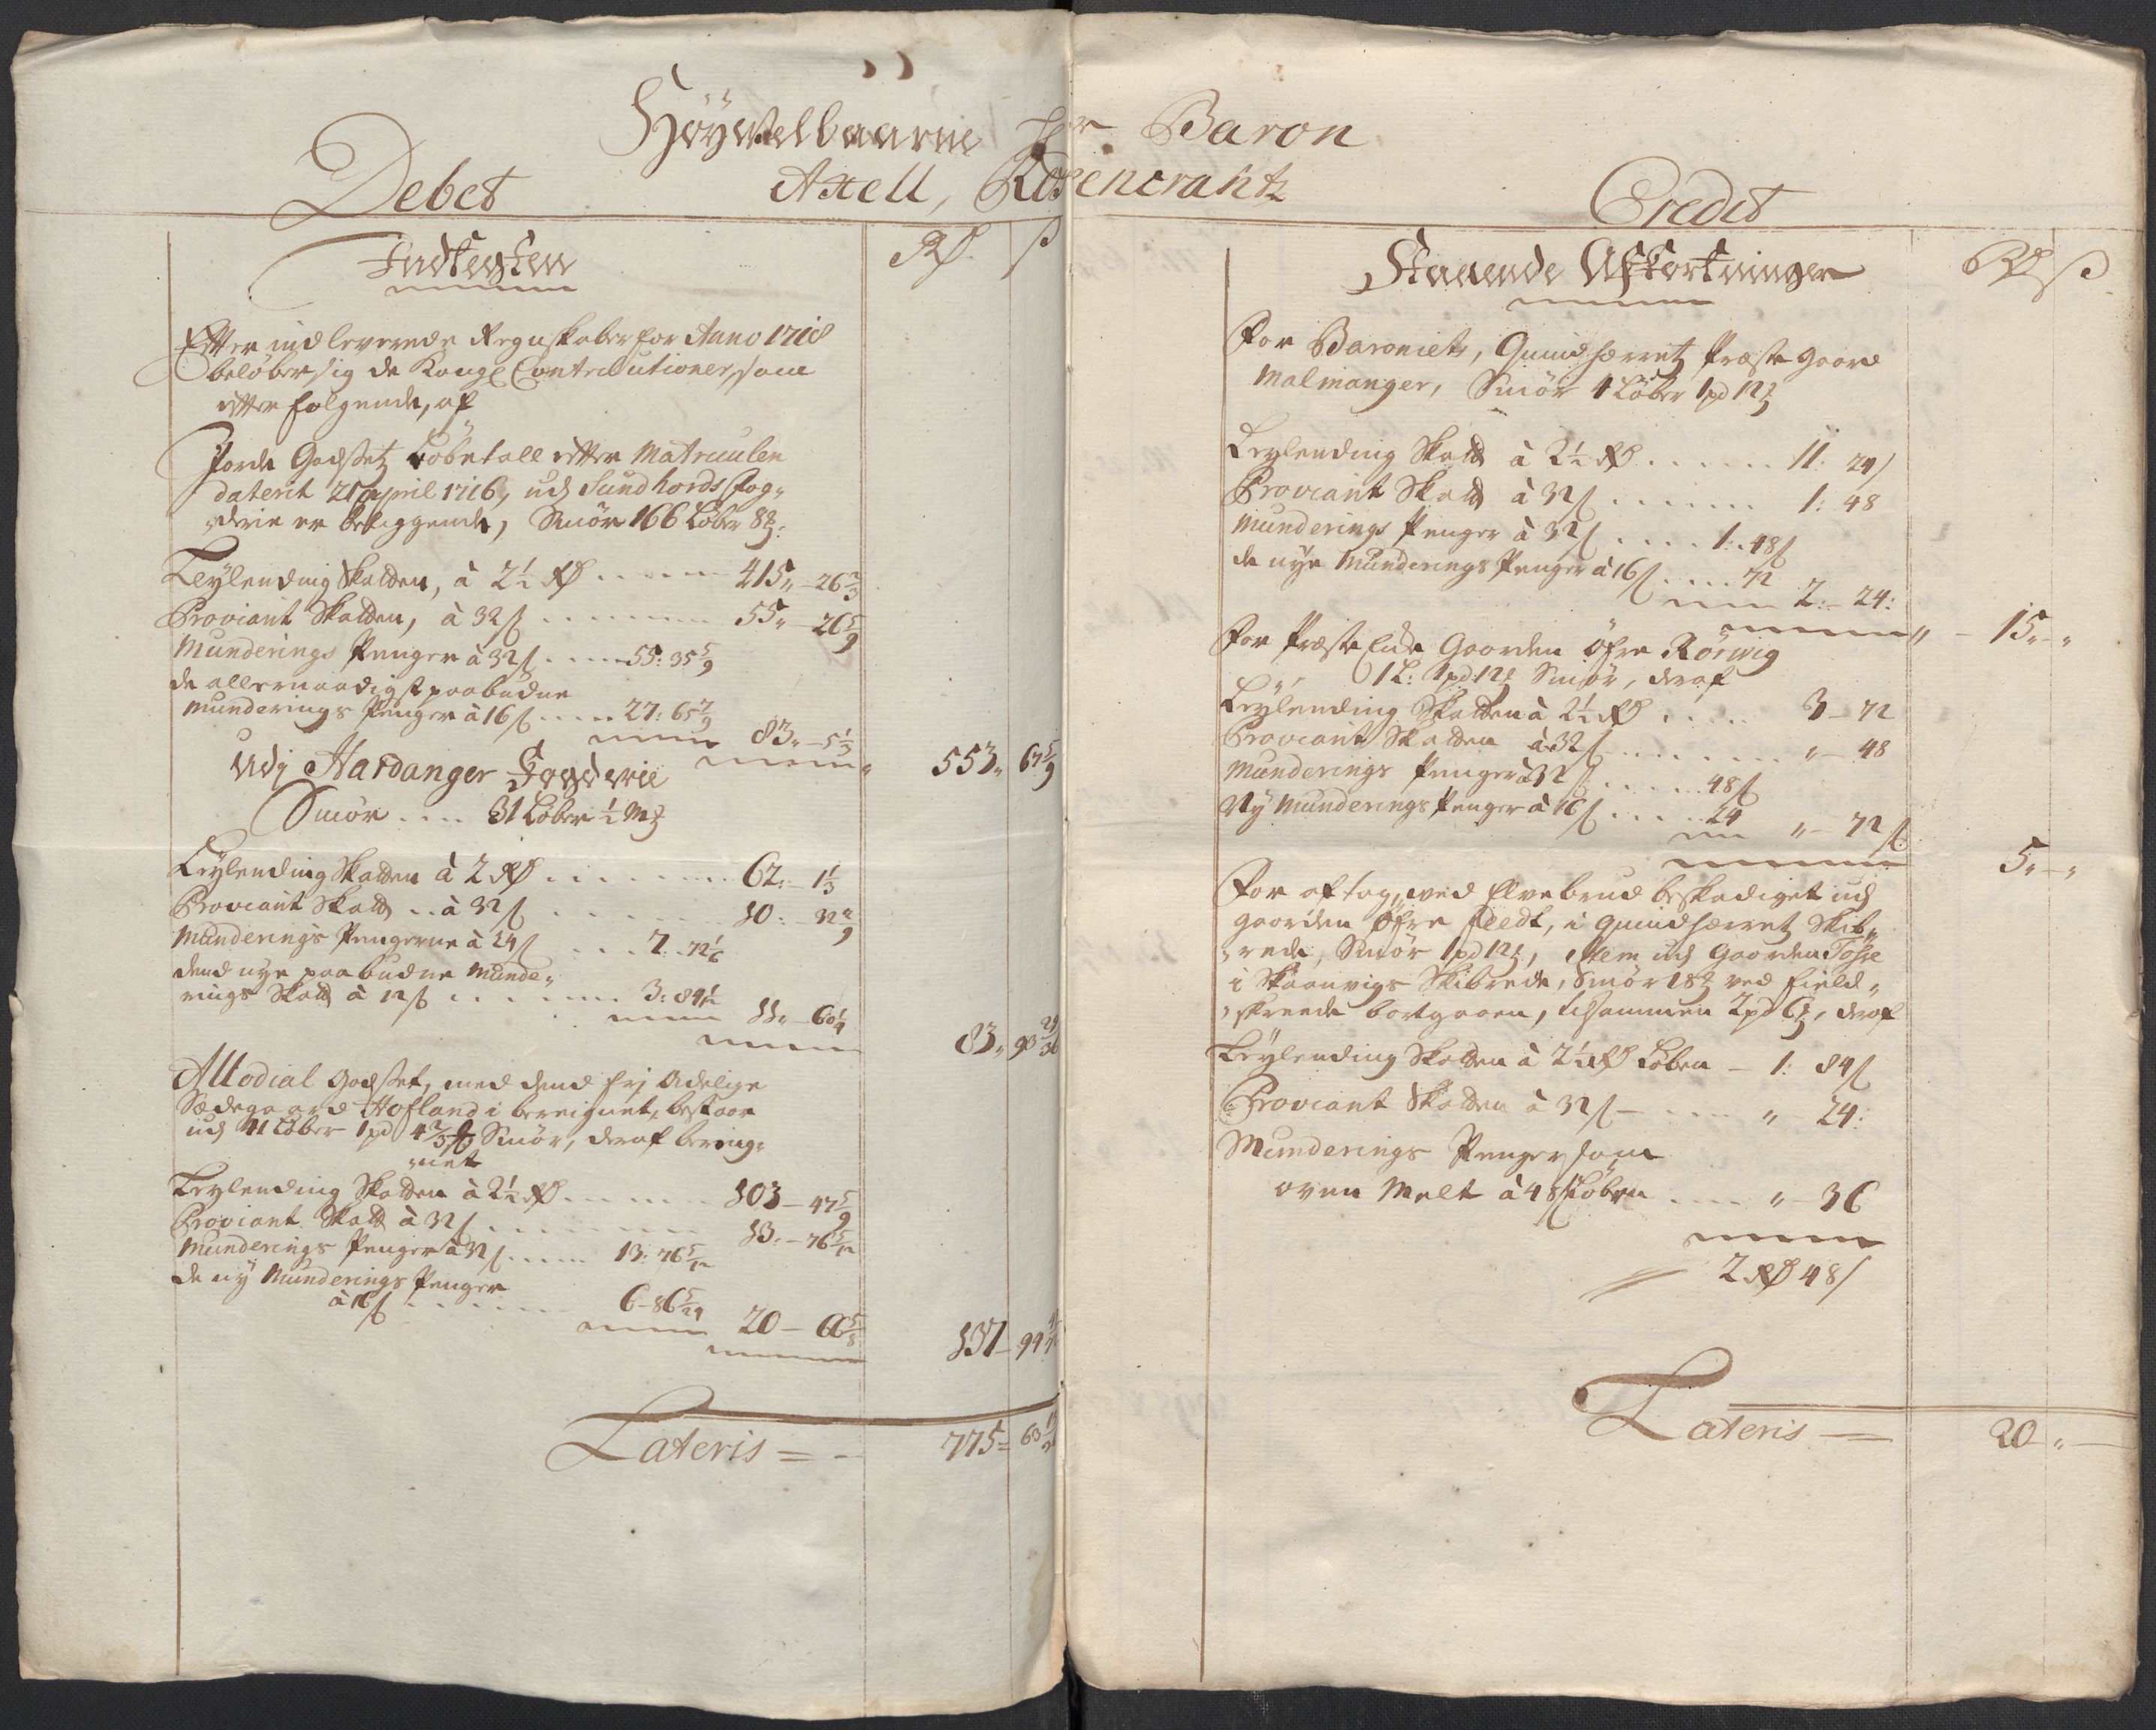 Höyvelbaarne Hr. Baron
Axell, Rosencrantz
Debet
Indtegten
Rd. ß
Efter indleverede Regnskaber for Anno 1718
beløber sig de Kongl Contributioner, som
efterfølgende, af
Jorde Godsetz Løbetall efter Matricúlen
daterit 21 april 1716, udj Sundhords fog„
„derie er beliggende, Smör 166 Løber 8 ℔:
Leylending Skatten, à 2½ Rd ..... 415„ – 26 2/3
Proviant Skatten, à 32 ß ..... 55„ – 26 5/9
Munderings Penger à 32 ß ..... 55: 35 5/9
de allernaadigst paabudne
Munderings Penger à 16 ß ..... 27: 65 7/9
83„ – 5 1/3
553„ 67 5/9
Udj Hardanger Fogderie
Smör .... 31 Løber ½ Mk
Leylending Skatten à 2 Rd ....... 62: – 1 1/3
Proviant Skatt .. à 32 ß ....... 10: – 32 2/9
Munderings Pengerne à 24 ß .... 7 .. 72 1/6
dend nye paabudne Munde„
rings Skatt à 12 ß ....... 3: 84 1/12
11„ – 60 1/4
83„ 93 29/36
Allodial Godset, med dend frj Adelige
Sædegaard Hofland i bereignet, bestaar
udj 41 Løber 1 pd 4 2/3 Smör, deraf bereig„
„net
Leylending Skatten à 2½ Rd ...... 103 – 47 5/9
Proviant Skatt à 32 ß ....... 13: – 76 5/12
Munderings Penger à 32 ß ..... 13: 76 5/12
de ny Munderings Penger
à 16 ß ....... 6 – 86 5/24
20 – 66 5/8
137 – 94
Lateris = – 775 = 63
Credit
Staaende Afkortninger
Rd ß
For Baroniets, Quindherretz Præste gaard
Malmanger, Smör 4 Løber 1 pd 12 ℔
Leylending Skatt à 2½ Rd ...... 11: 24 ß
Proviant Skatt à 32 ß ...... 1: 48
Munderings Penger à 32 ß .... 1: 48 ß
de nye Munderings Penger à 16 ß .... 72
2: – 24:
„ – 15„ – „
For Præste Ende Gaarden Öfre Rörvig
1 L: 1 pd 12 ℔ Smör, deraf
Leylending Skatten à 2½ Rd ..... 3 – 72
Proviant Skatten à 32 ß ....... „ – 48
Munderings Penger à 32 ß ..... 48 ß
Ny Munderings Penger à 16 ß ..... 24
„ – 72 ß
5„ – „
For aftag, ved Elvebrud beskadiget udj
gaarden Öfre Feedt, i Quindherret Skib„
„rede, Smör 1 pd 12 ℔, item udj Gaarden Tofte
i Skaanvigs Skibrede, Smör 18 ℔ ved Field„
„skreede bortgaaen, tilsammen 2 pd 6 ℔, deraf
Leylending Skatten à 2½ Rd Løben – 1: 84 ß
Proviant Skatten à 32 ß – ..... „ 24:
Munderings Penger som
oven Melt à 48 ß Løben .... „ – 36
2 Rd 48 ß
Lateris — 20 „ —